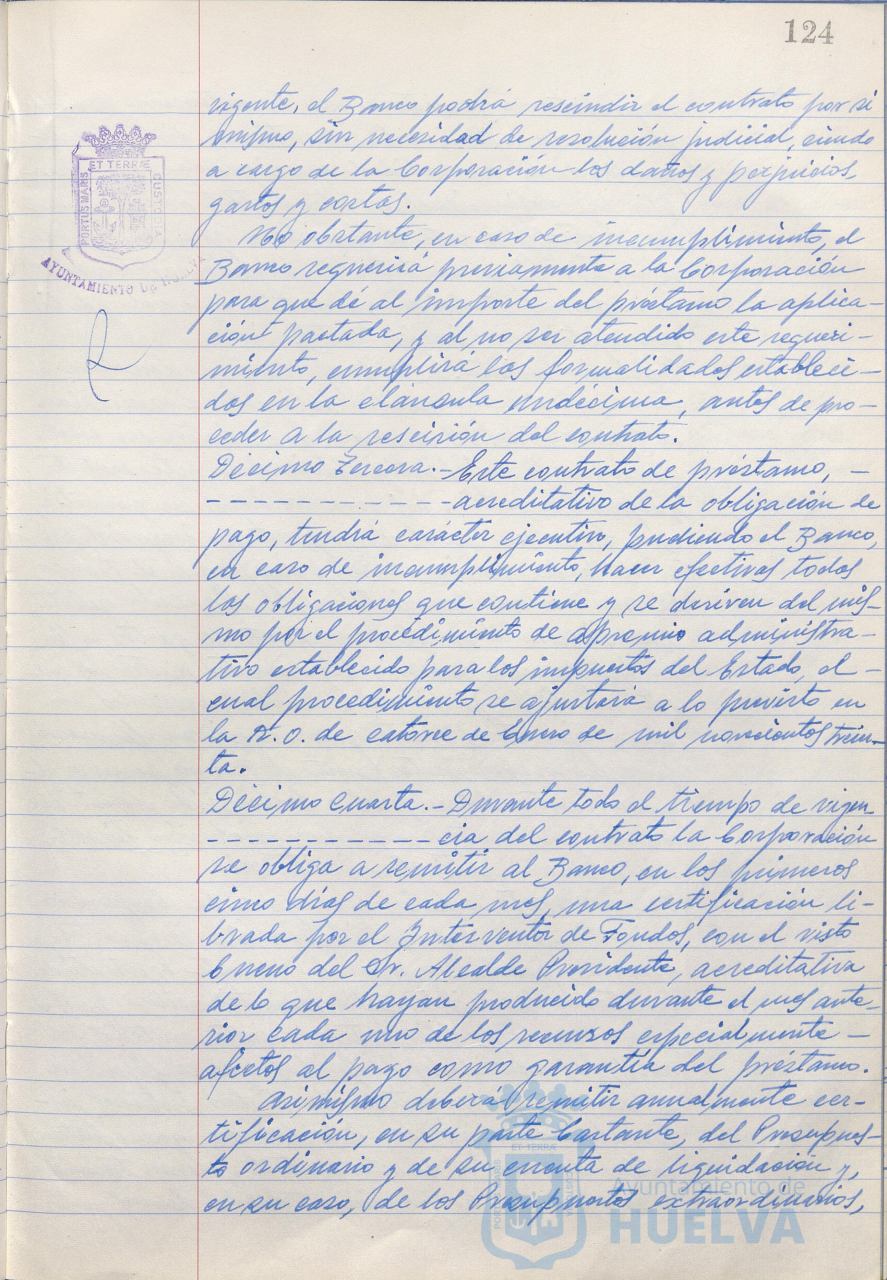 124
vigente, el Banco podrá rescindir el contrato por sí
mismo, sin necesidad de resolución judicial, siendo
a cargo de la Corporación los daños y perjuicios,
gastos y costas.
No obstante, en caso de incumplimiento, el
Banco requerirá previamente a la Corporación
para que dé al importe del préstamo la aplica-
ción pactada, y al no ser atendido este requeri-
miento, cumplirá las formalidades estableci-
das en la cláusula undécima, antes de pro-
ceder a la rescisión del contrato.
Décimo Tercera.- Este contrato de préstamo, -
- - - - - - - - - - - acreditativo de la obligación de
pago, tendrá carácter ejecutivo, pudiendo el Banco,
en caso de incumplimiento, hacer efectivas todas
las obligaciones que contiene y se deriven del mis-
mo por el procedimiento de apremio administra-
tivo establecido para los impuestos del Estado, el -
cual procedimiento se ajustará a lo previsto en
la R. O. de catorce de Enero de mil novecientos trein-
ta.
Décimo Cuarta.- Durante todo el tiempo de vigen
- - - - - - - - - - - cia del contrato la Corporación
se obliga a remitir al Banco, en los primeros
cinco días de cada mes, una certificación li-
brada por el Interventor de Fondos, con el visto
bueno del Sr. Alcalde Presidente, acreditativa
de lo que hayan producido durante el mes ante-
rior cada uno de los recursos especialmente -
afectos al pago como garantía del préstamo.
Asimismo deberá remitir anualmente cer-
tificación, en su parte bastante, del Presupues-
to ordinario y de su cuenta de liquidación y,
en su caso, de los Presupuestos extraordinarios,
ET TERRÆ
PORTUS MARIS
CUSTODIA
AYUNTAMIENTO DE HUELVA
ET TERRA
Ayuntamiento de
HUELVA